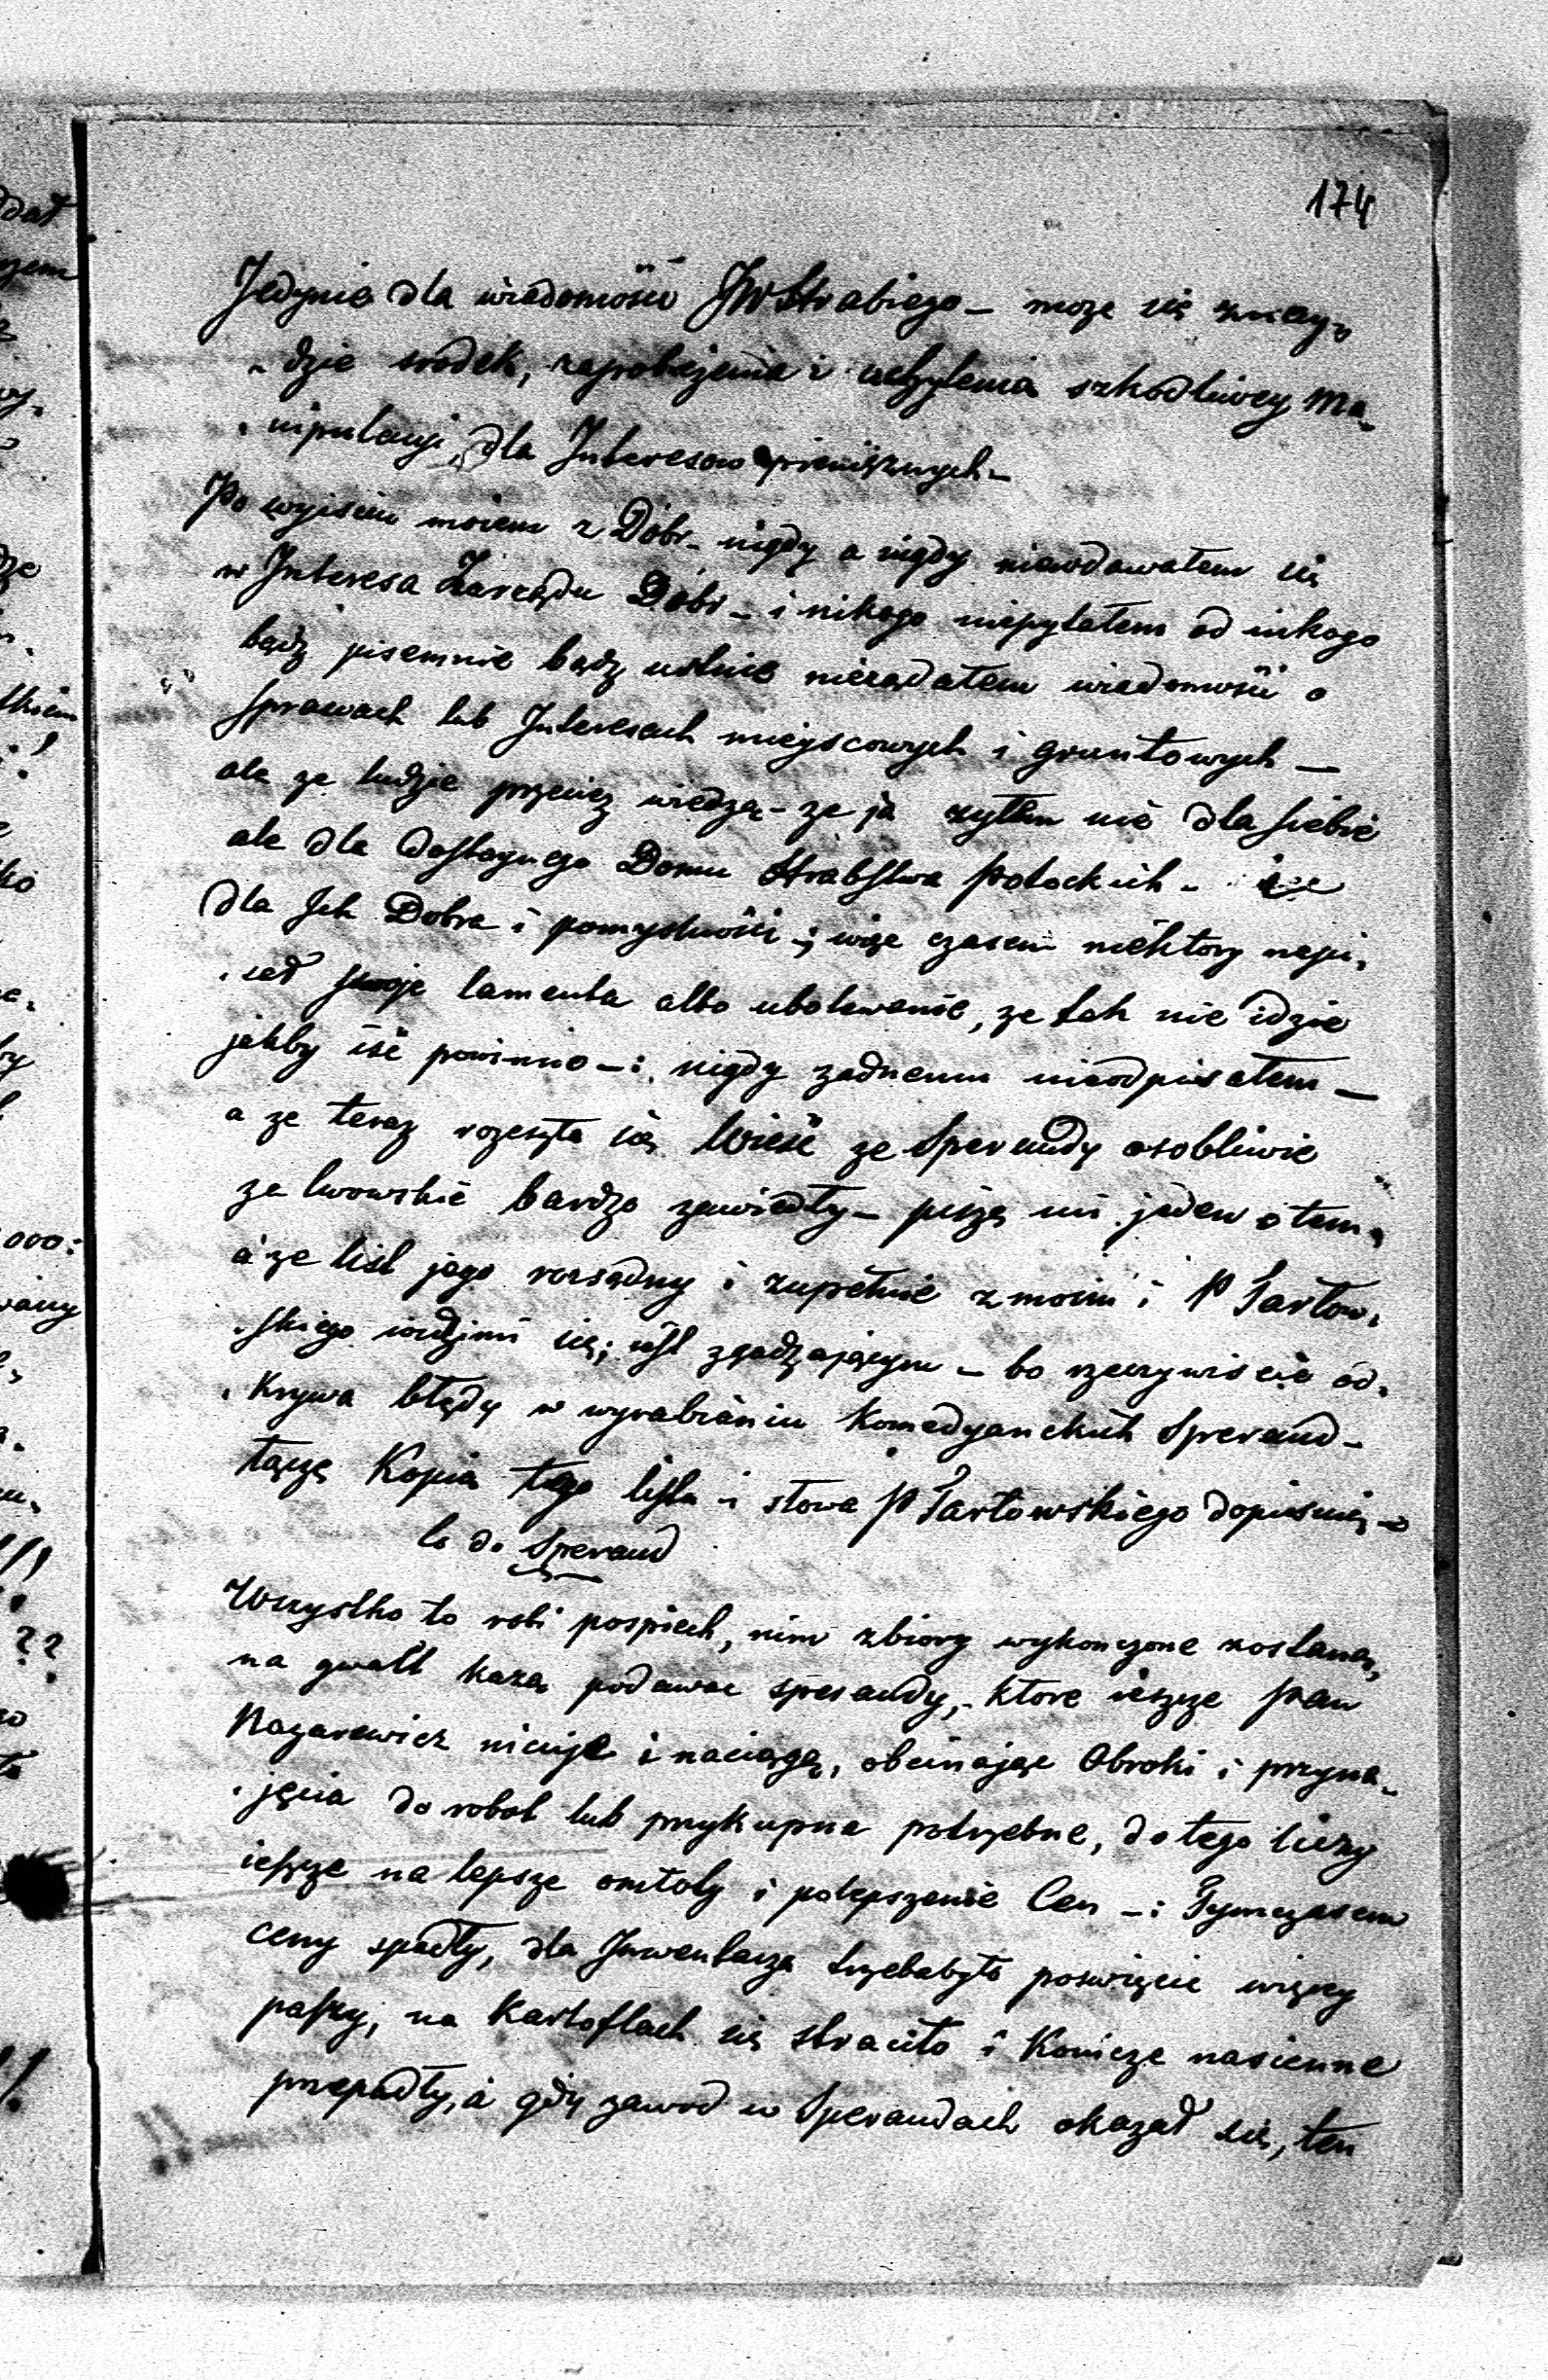 174
Jedynie dla wiadomości JWHrabiego – moze się znay-
dzie srodek, zapobieżenia i uchylenia szkodliwey Ma-
nipulacyi, dla Interesow pieniężnych –
Po wyisciu moiem z Dóbr – nigdy a nigdy niewdawałem się
w Interesa Zarządu Dóbr – i nikogo niepytałem od nikogo
bądz pisemnie bądz ustnie nieżądałem wiadomości o
sprawach lub Interesach mieyscowych i gruntowych –
ale ze ludzie przeciez wiedzą – ze ja zyłem nie dla siebie
ale dla Dostoynego Domu Hrabstwa Potockich –
dla Ich Dobra i pomyslności – więc czasem niektory napi-
sał swoje lamenta albo ubolewanie, ze tak nie idzie
jakby iść powinno –: nigdy zadnemu nieodpisałem –
a ze teraz rozeszła się Wieść ze Sperandy osobliwie
za lwowskie bardzo zawiodły – piszą mi jeden o tem,
a ze list jego rozsądny i zupełnie z moim i P Tartow-
skiego widzimi się; iest zgadzającym – bo rzeczywiscie od-
krywa błędy w wyrabianiu Komedyanckich Sperand –
łączę Kopią tego listu i słowa P Tartowskiego dopiszę –
Co do Sperand
Wszystko to robi pospiech, nim zbiory wykonczone zostaną,
na gwałt każą podawac sperandy, ktore ieszcze Pan
Nazarewicz nicuje i naciąga, obcinając Obroki i przyna-
jęcia do robot lub przykupna potrzebne, do tego liczy
ieszcze na lepsze omłoty i polepszenie Cen –: Tymczasem
ceny spadły, dla Inwentarza trzebabyło poswięcic więcey
paszy, na Kartoflach się straciło i Konicze nasienne
przepadły, a gdy zawod w Sperandach okazał się, ten